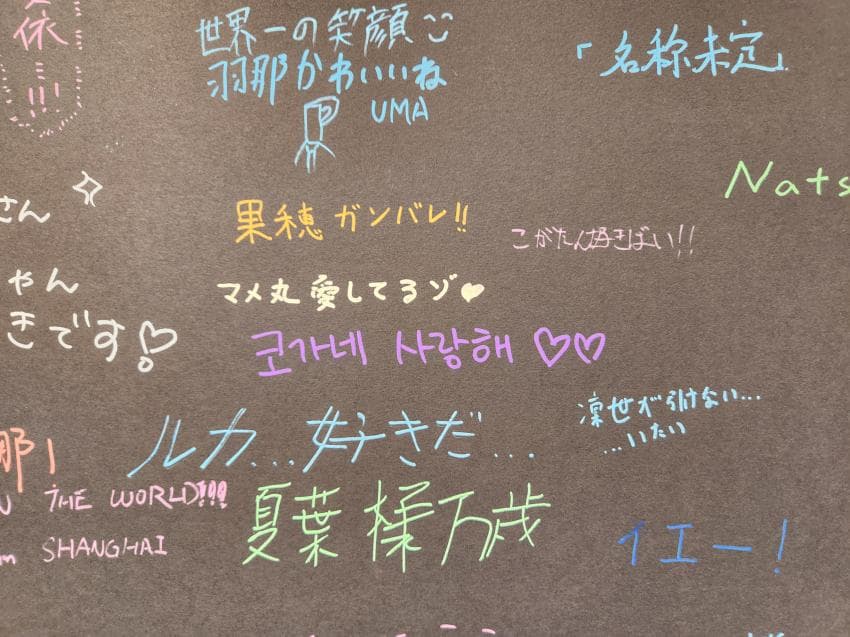 依
!!!
世界一の笑顔
羽那かわいいね
UMA
「名称未定」
Nats
さん
果穂ガンバレ!!
こがたん好きばい!!
ゃん
マメ丸愛してるゾ♥
きです♡
코가네 사랑해♡♡
凛世が引けない...
...いたい
ルカ...好きだ...
那!
THE WORLD!!!
夏葉様万歳
m SHANGHAI
イエー!